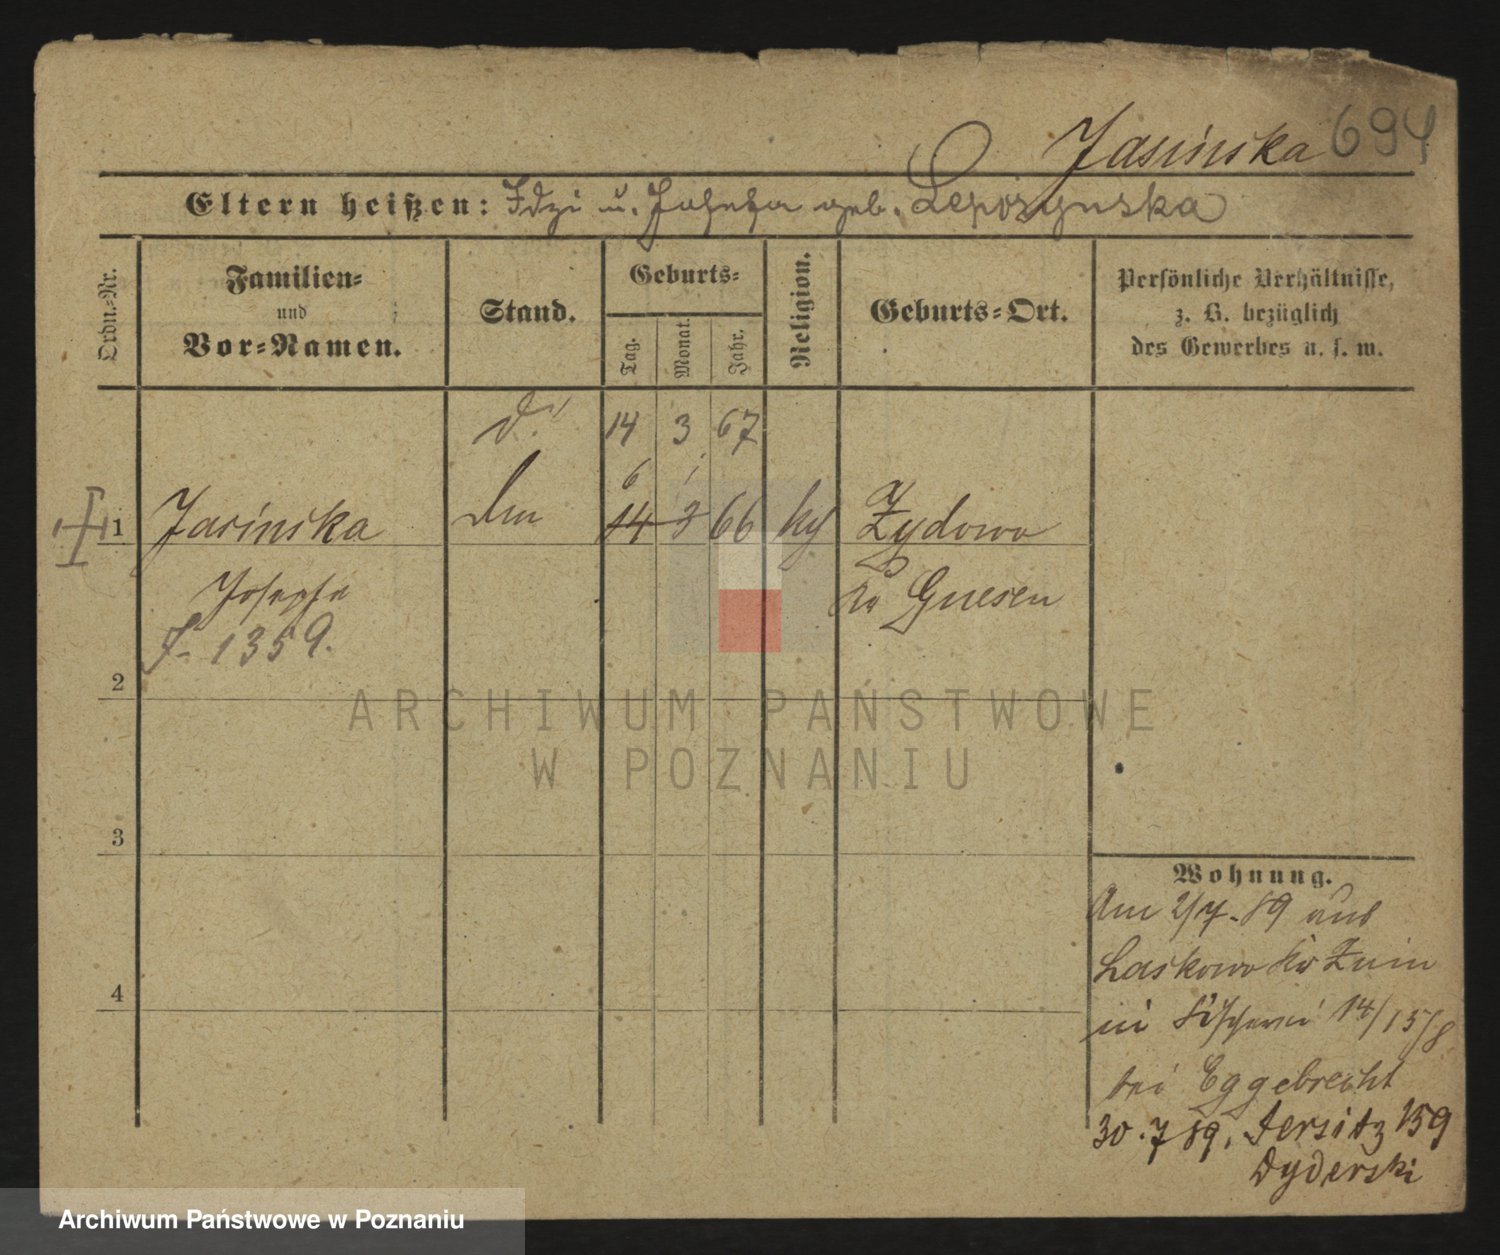 Jasinska 694
Eltern heißen: Idzi u. Josepha geb. Lepczynska
Ordn.-Nr.
Familien-
und
Vor-Namen.
Stand.
Geburts-
Tag.
Monat.
Jahr.
Religion.
Geburts-Ort.
Persönliche Verhältnisse,
z. B. bezüglich
des Gewerbes u. s. w.
14 3 67
6 1
1 Jasinska 14 3 66 Zydowo
Josepha Kr Gnesen
J. 1359.
2
3
4
Wohnung.
Am 2/7.89 aus
Laskowo Kr Znin
in Fischerei 14/15/8
bei Eggebrecht
30.7.89. Jersitz 159
Dyderski
ARCHIWUM PAŃSTWOWE
W POZNANIU
Archiwum Państwowe w Poznaniu